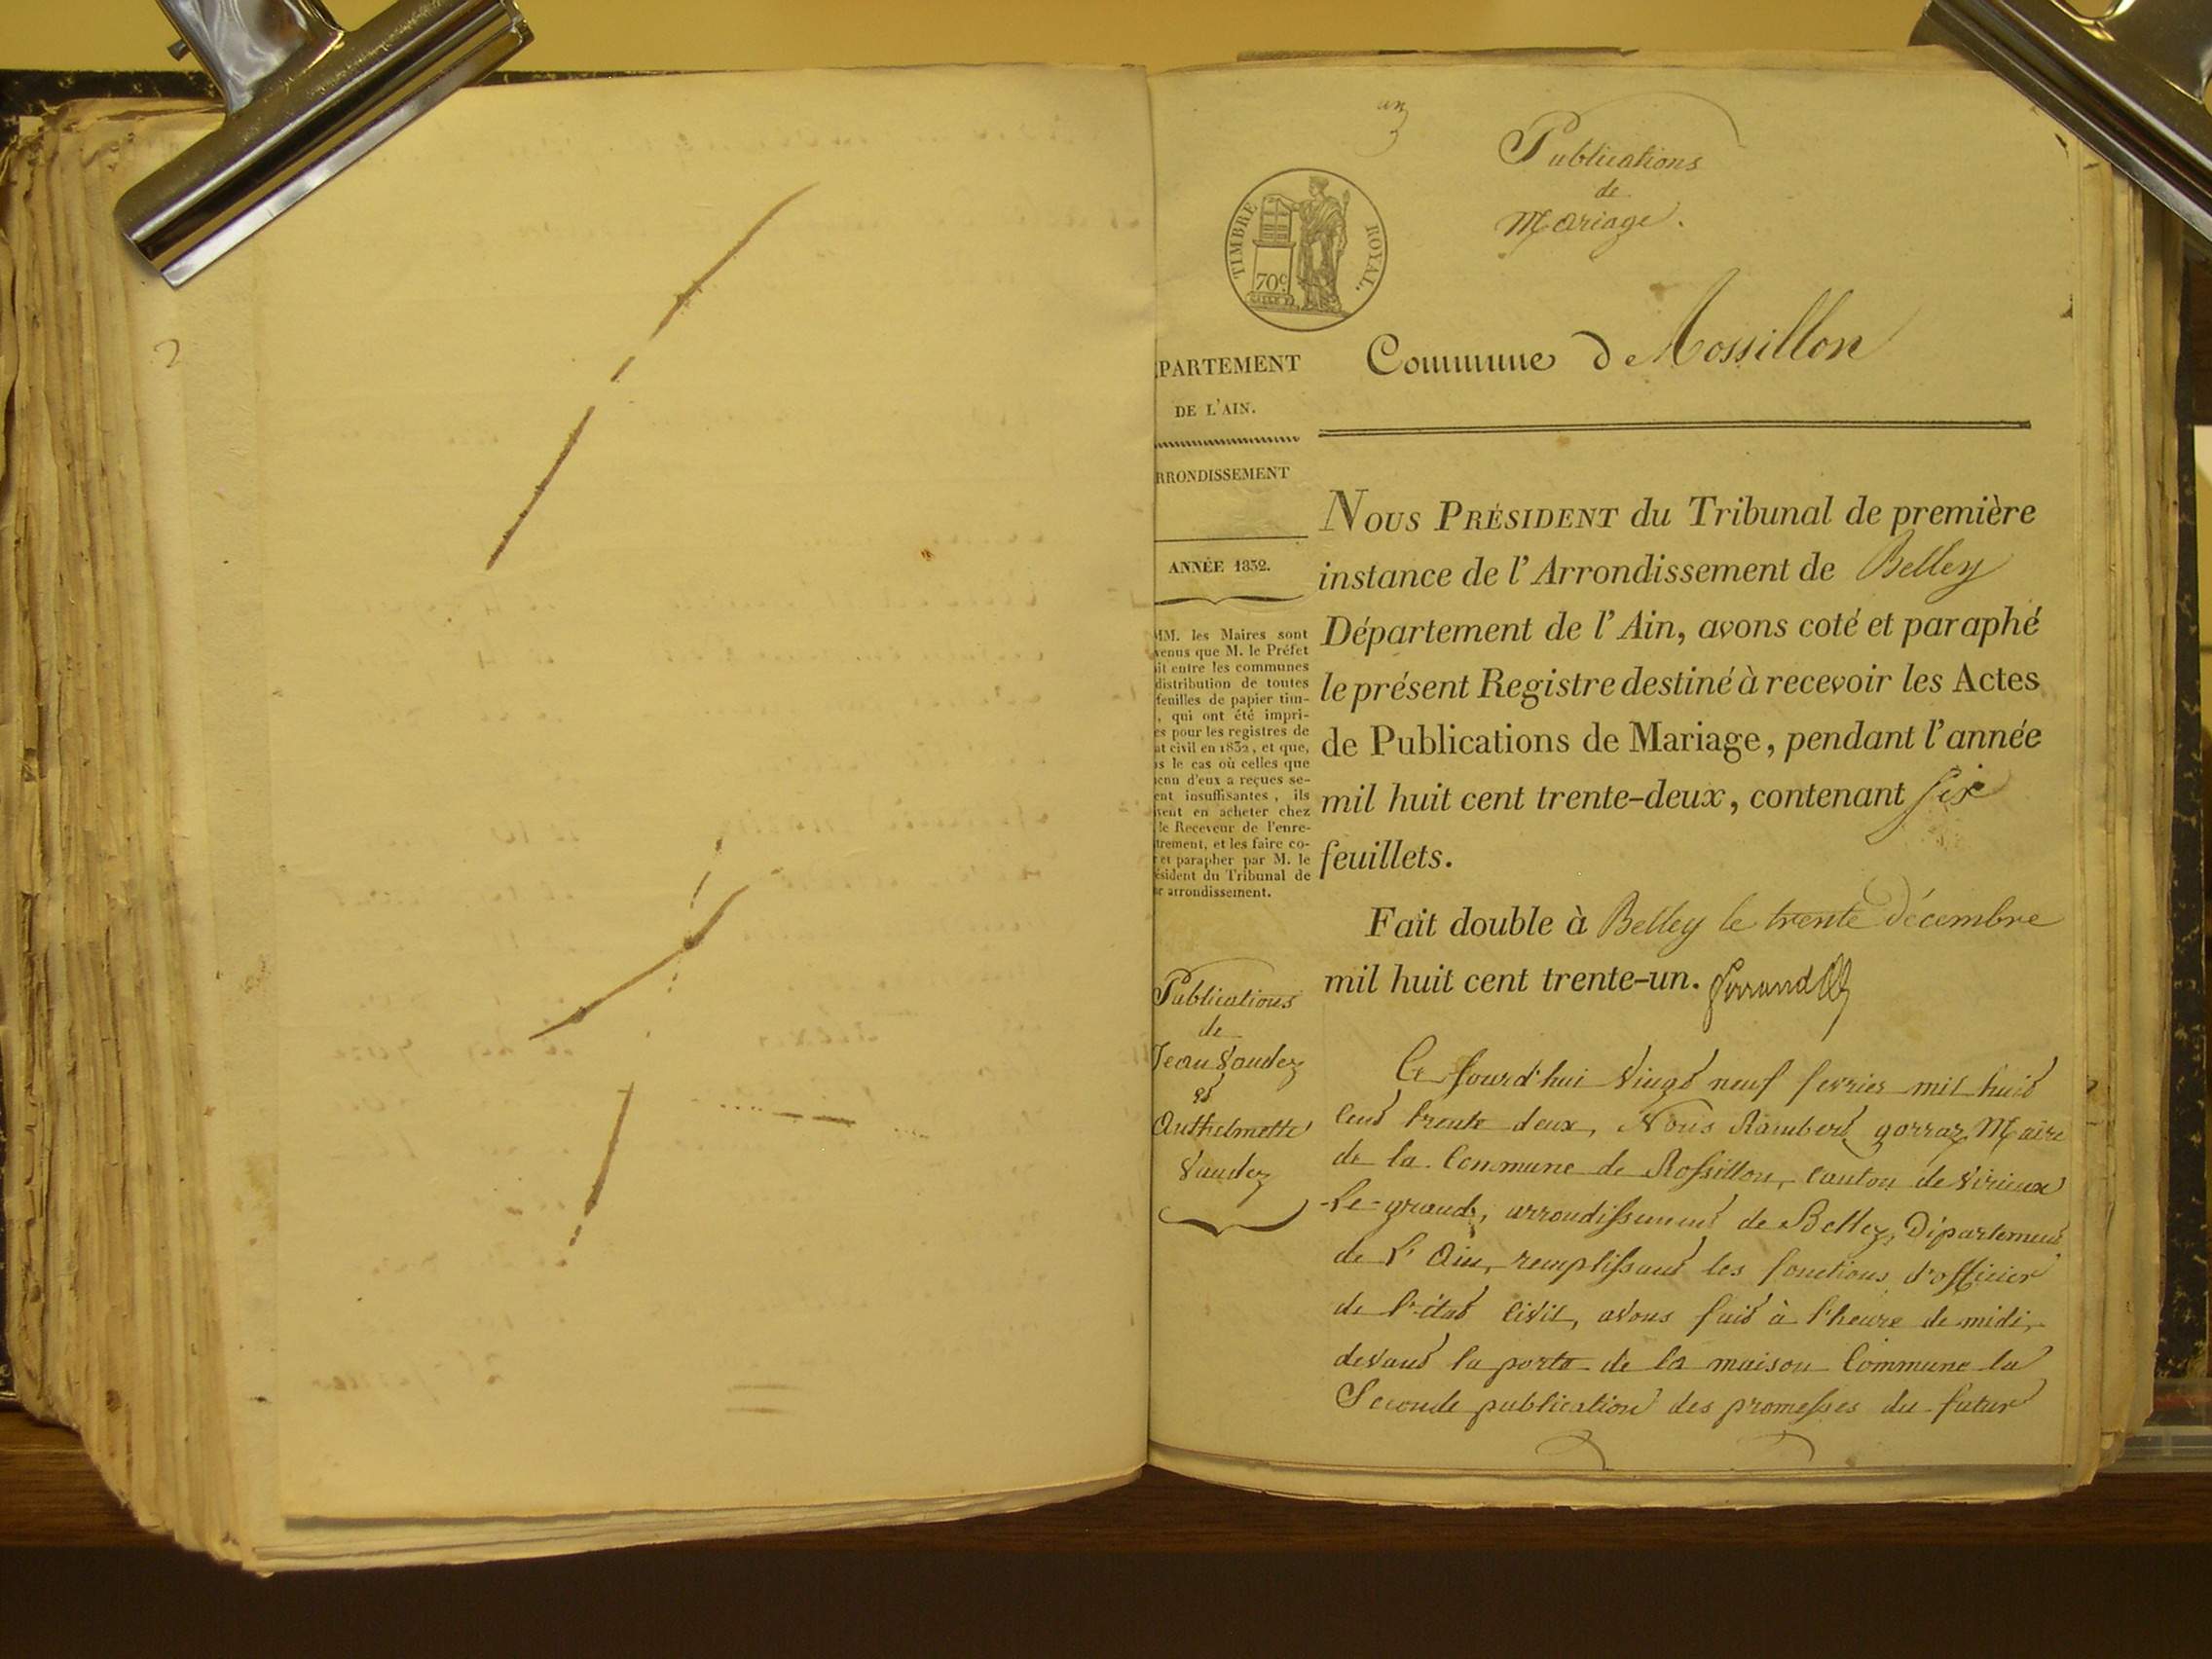 Publications
de
Mariage.
TIMBRE ROYAL.
70c
Commune de Rossillon
PARTEMENT
DE L'AIN.
RRONDISSEMENT
ANNÉE 1832.
MM. les Maires sont
venus que M. le Préfet
it entre les communes
distribution de toutes
feuilles de papier tim-
, qui ont été impri-
es pour les registres de
at civil en 1832, et que,
s le cas où celles que
acun d'eux a reçues se-
ent insuffisantes, ils
vent en acheter chez
le Receveur de l'enre-
trement, et les faire co-
r et parapher par M. le
ésident du Tribunal de
ur arrondissement.
NOUS PRÉSIDENT du Tribunal de première
instance de l'Arrondissement de Belley
Département de l'Ain, avons coté et paraphé
le présent Registre destiné à recevoir les Actes
de Publications de Mariage, pendant l'année
mil huit cent trente-deux, contenant six
feuillets.
Fait double à Belley le trente Décembre
mil huit cent trente-un.
Publications
de
Jean Vaudez
et
Anthelmette
Vaudez
Ce Jourd'hui Vingt neuf fevrier mil huit
Cent trente deux, Nous Rambert gorraz Maire
de la Commune de Rossillon, canton de Virieux
-Le-grand, arrondissement de Belley, Département
de L'Ain, remplissant les fonctions d'officier
de l'état Civil, avons fait à l'heure de midi,
devant la porte de la maison Commune la
Seconde publication des promesses du futur